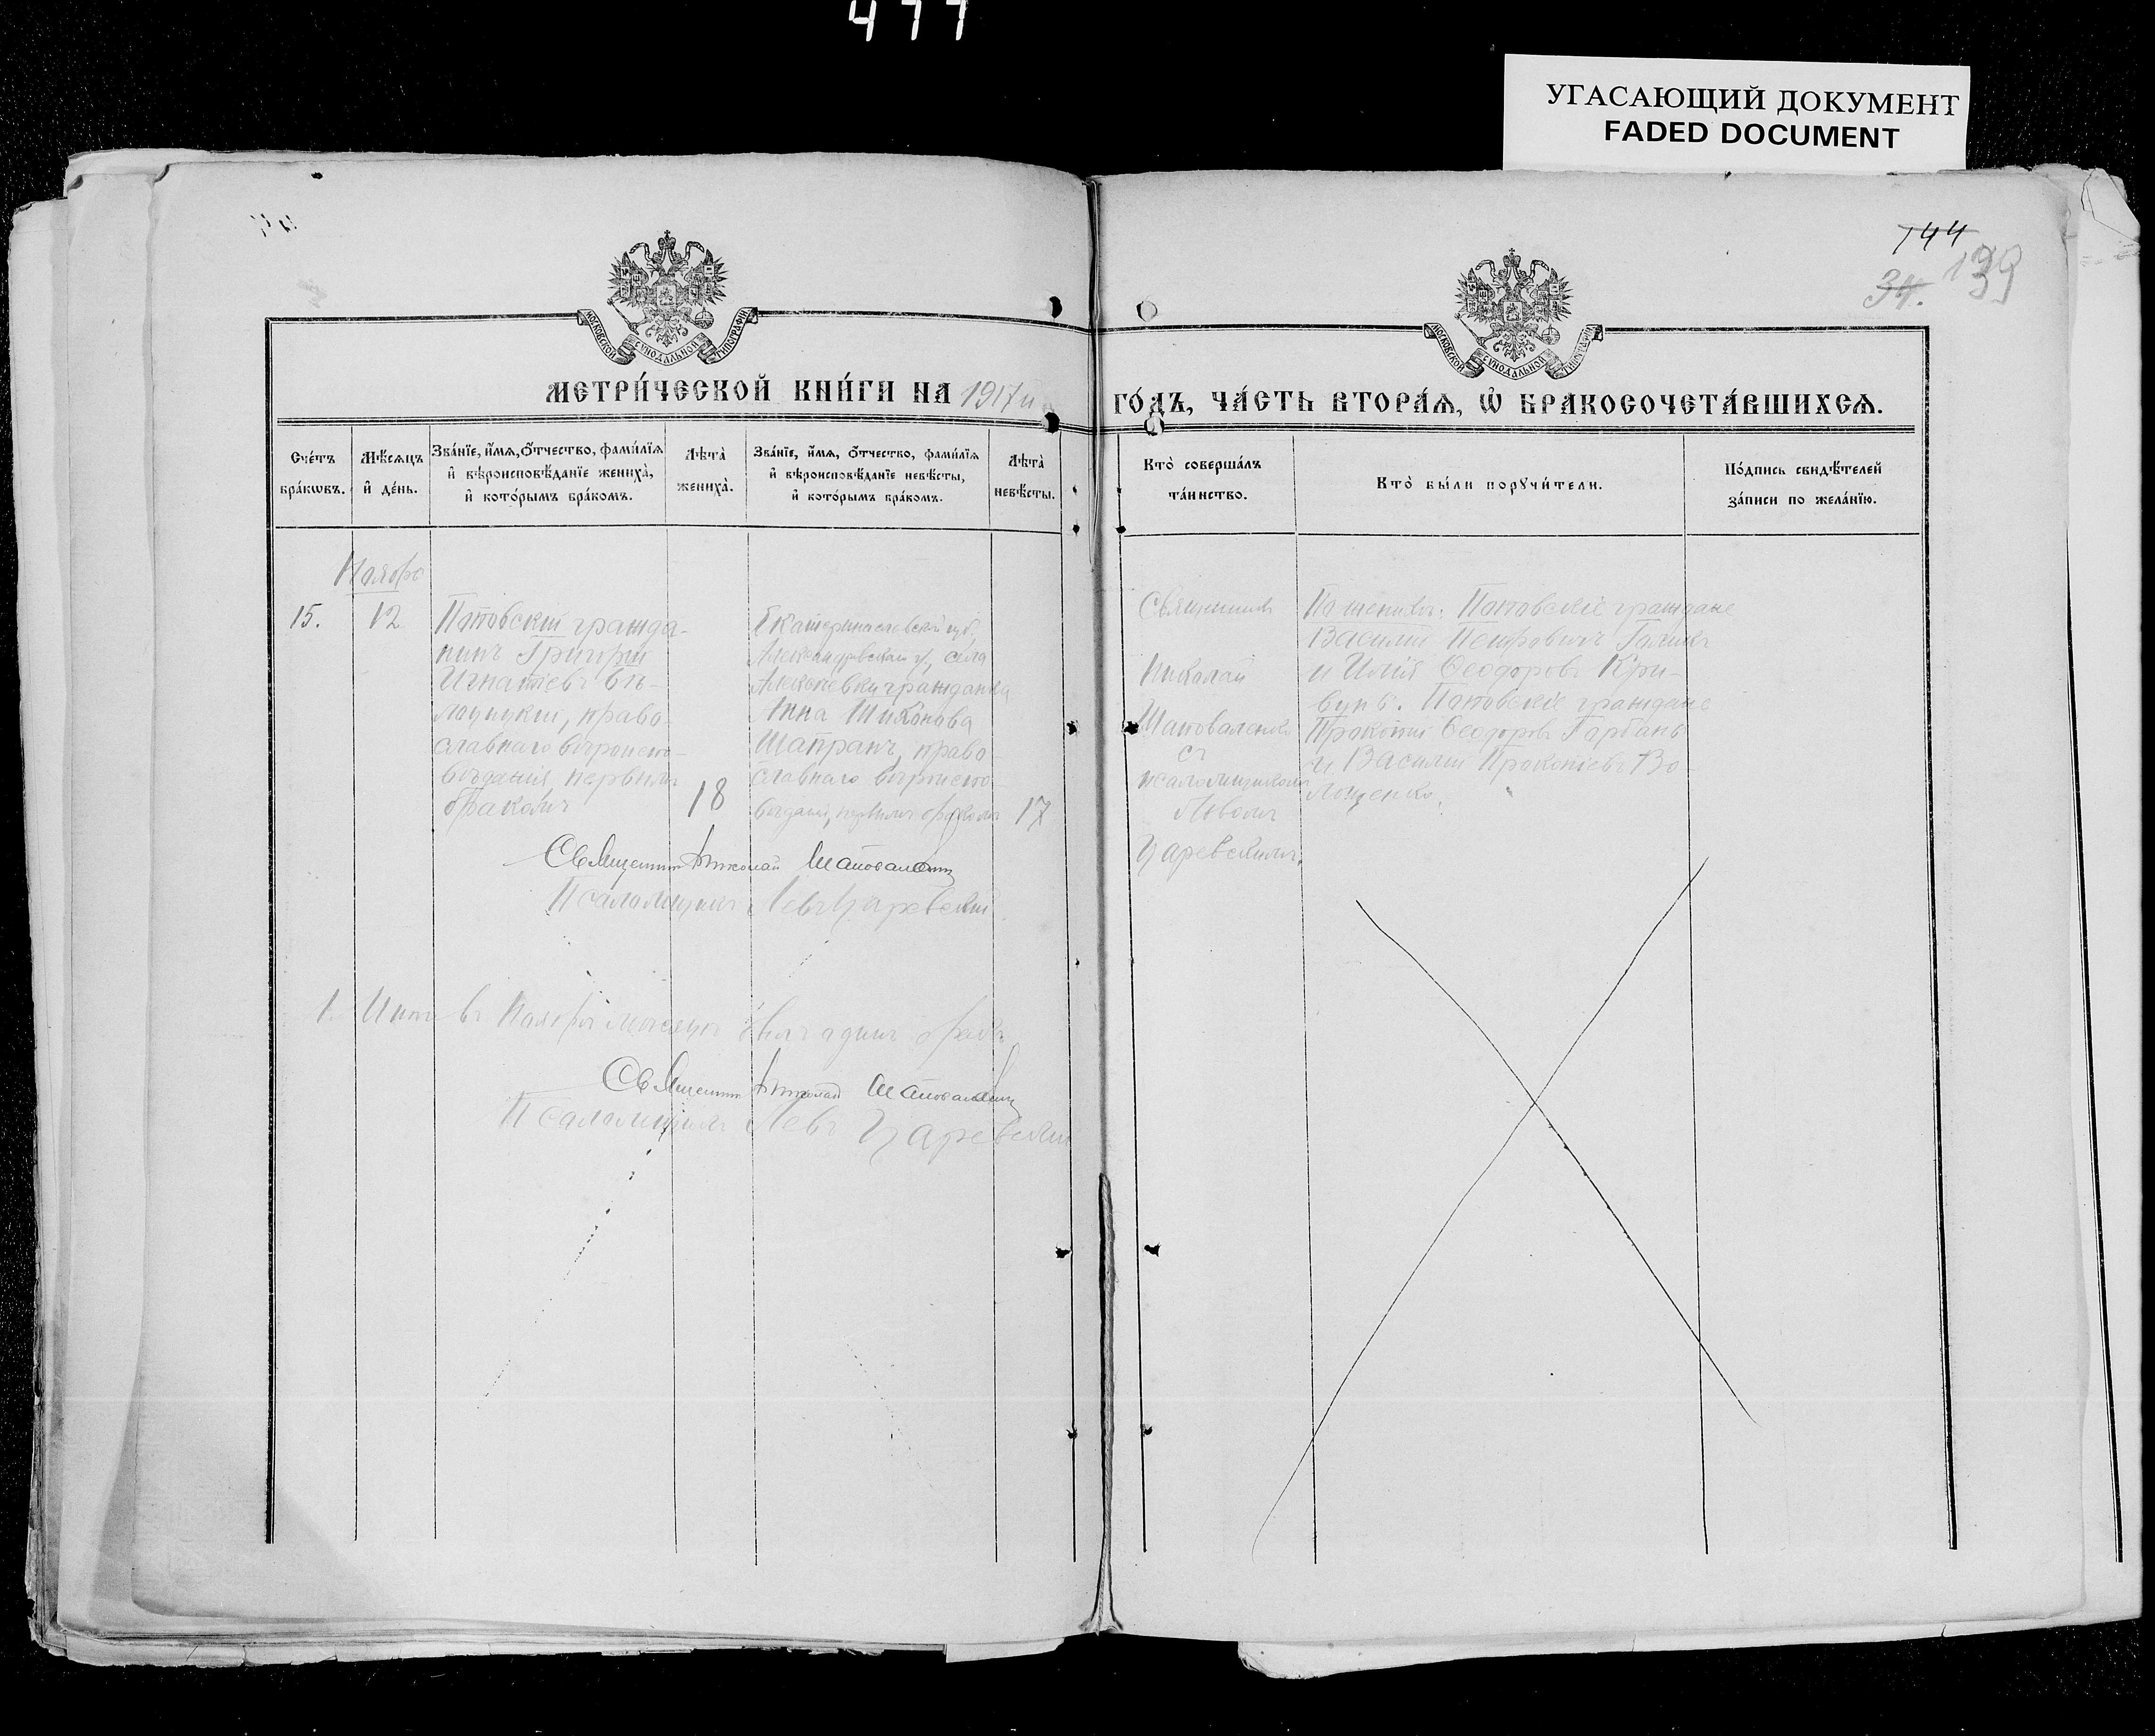 477
УГАСАЮЩИЙ ДОКУМЕНТ
FADED DOCUMENT
144
34. 139
МОСКОВСКОЙ СУНОДАЛЬНОЙ ТИПОГРАФІИ
МОСКОВСКОЙ СУНОДАЛЬНОЙ ТИПОГРАФІИ
МЕТРИ́ЧЕСКОЙ КНИ́ГИ НА 1917й
ГО́ДЪ, ЧА́СТЬ ВТОРА́Я, Ѽ БРАКОСОЧЕТА́ВШИХСЯ.
Сче́тъ бра́кѡвъ.
Мѣ́сяцъ и҆ де́нь.
Зва́нїе, и҆́мя, ѻ҆́тчество, фами́лїя и҆ вѣроисповѣ́данїе жениха̀, и҆ кото́рымъ бра́комъ.
Лѣ́та̀ жениха̀.
Зва́нїе, и҆́мя, ѻ҆́тчество, фами́лїя и҆ вѣроисповѣ́данїе невѣ́сты, и҆ кото́рымъ бра́комъ.
Лѣ́та̀ невѣ́сты.
Кто̀ соверша́лъ та́инство.
Кто̀ бы́ли порꙋчи́тели.
По́дпись свидѣ́телей за́писи по жела́нїю.
Ноябрь
15.
12
Поповскій гражда-
нинъ Григорій
Игнатіевъ Бѣ-
лоуцкій, право-
славнаго вѣроиспо-
вѣданія, первымъ
бракомъ
18
Екатеринославской губ.,
Александровскаго у., села
Алексѣевки гражданка
Анна
Шапранъ, право-
славнаго вѣроиспо-
вѣданія, первымъ бракомъ
17
Священникъ
Николай
Шаповаленко
съ
псаломщикомъ
Львомъ
Царевскимъ.
По женихѣ: Поповскіе граждане
Василій Петровичъ
и Илія Ѳеодоровъ Кри-
вунъ. Поповскіе граждане
Прокопій Ѳеодоровъ Гарбань
и Василій Прокопіевъ Во-
лощенко.
Священникъ Николай Шаповаленко
Псаломщикъ Левъ Царевскій
1. Итого въ Ноябрѣ мѣсяцѣ былъ одинъ бракъ
Священникъ Николай Шаповаленко
Псаломщикъ Левъ Царевскій